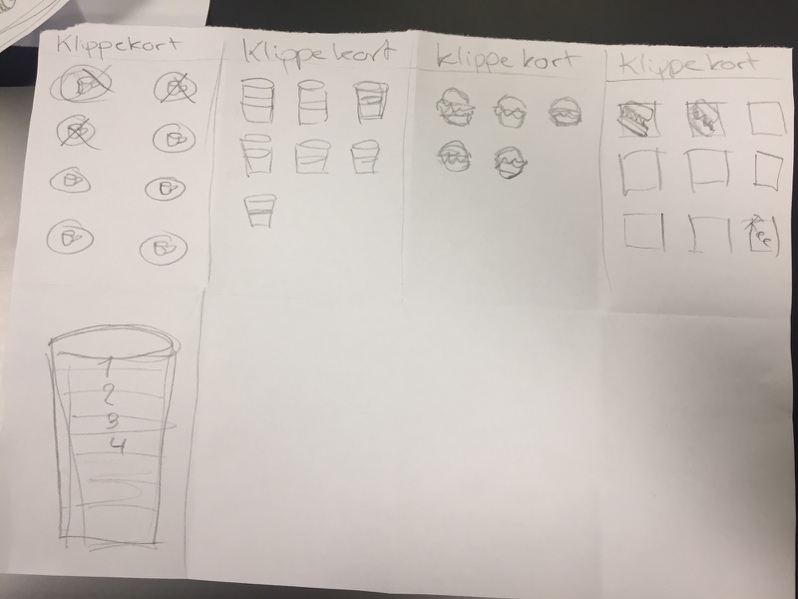 Klippekort
Klippekort
Klippekort
Klippekort
1
2
3
4